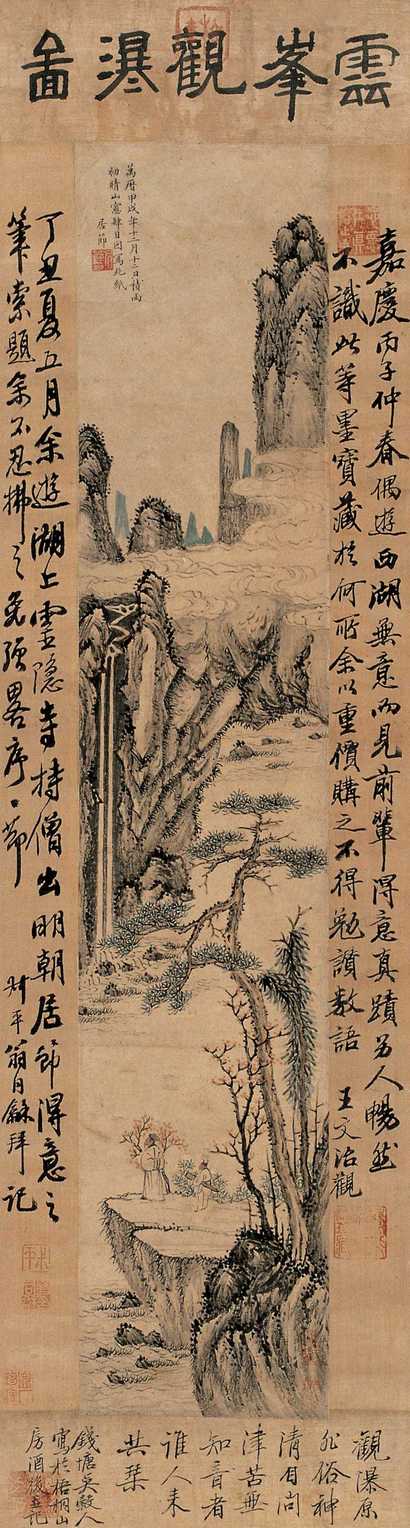 雲峯觀瀑圖
萬曆甲戌年十二月十二日積雨
初晴山窗肆目因寫此紙
居節
嘉慶丙子仲春偶遊西湖無意而見前輩得意真蹟另人暢然
不識此等墨寶藏於何所余以重價購之不得勉讚數語 王文治觀
丁丑夏五月余遊湖上靈隱寺持僧出明朝居節得意之
筆索題余不忍拂之免強畧序之節
叔平翁同龢拜記
觀瀑原
非俗神
清自向
津苦無
知音者
誰人來
共琴
錢塘吳榖人
寫於梧桐山
房酒後並記